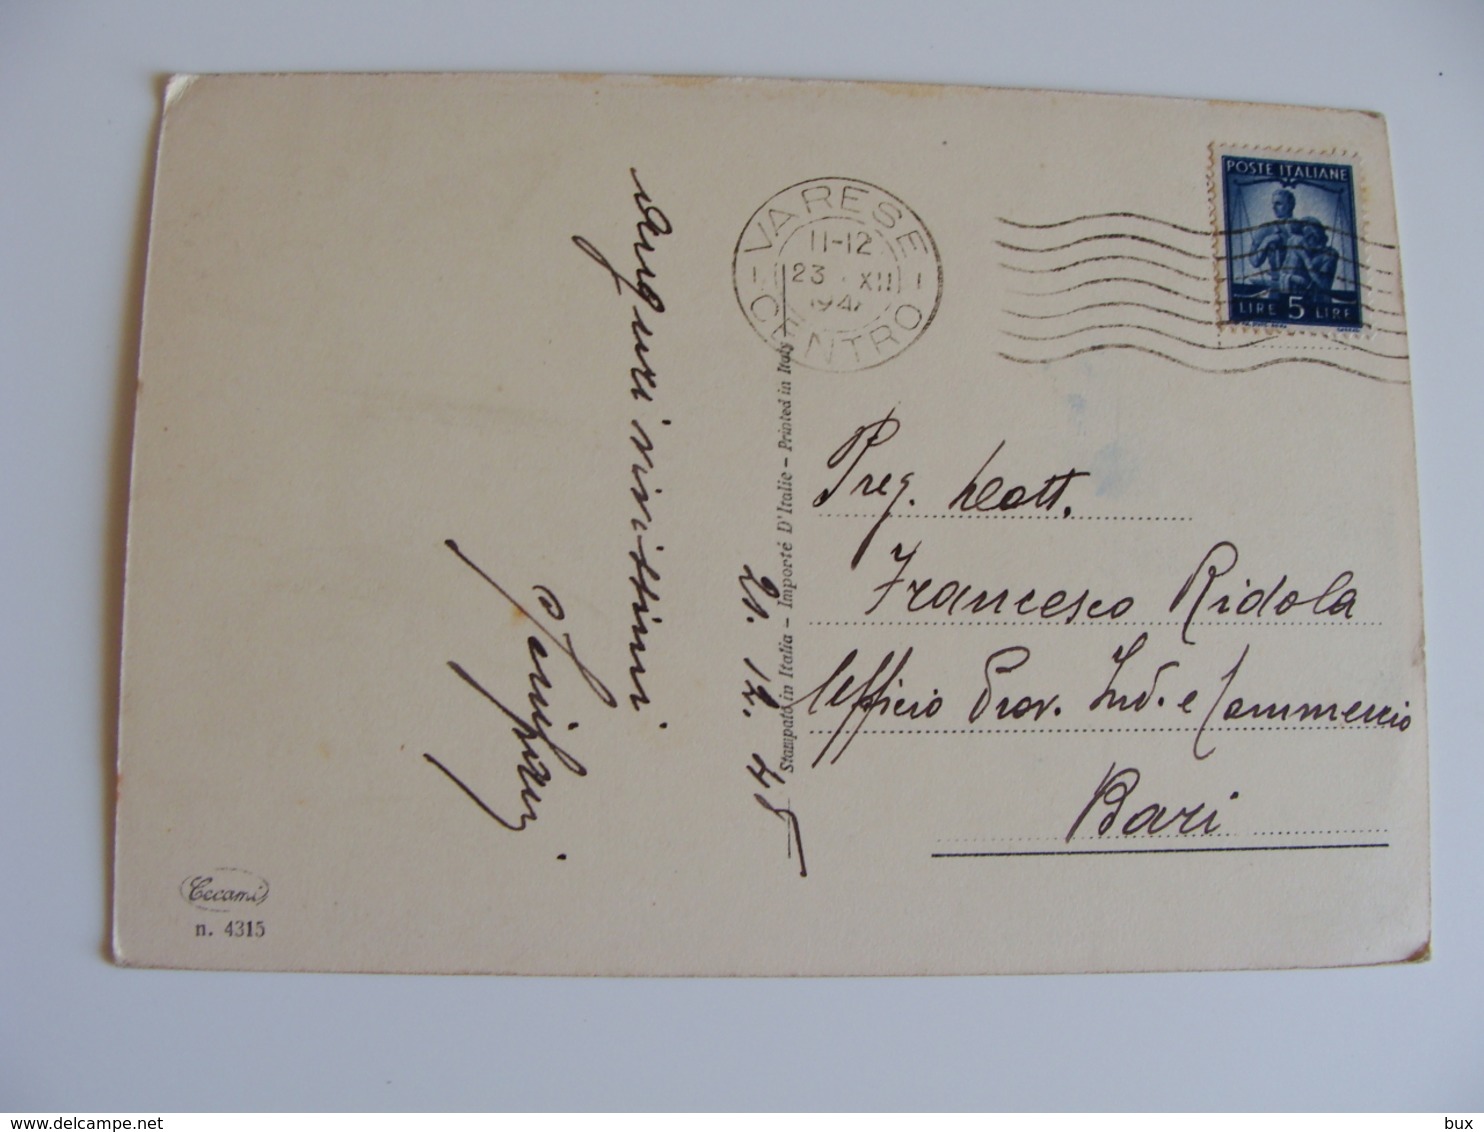 Auguri vivissimi
21. 12. 48
Stampato in Italia - Importé D'Italie - Printed in Italy
VARESE
11-12
23 XII
CENTRO
POSTE ITALIANE
LIRE 5 LIRE
Preg. Dott.
Francesco Ridola
Ufficio Prov. Ind. e Commercio
Bari
Cecami
n. 4315
bux